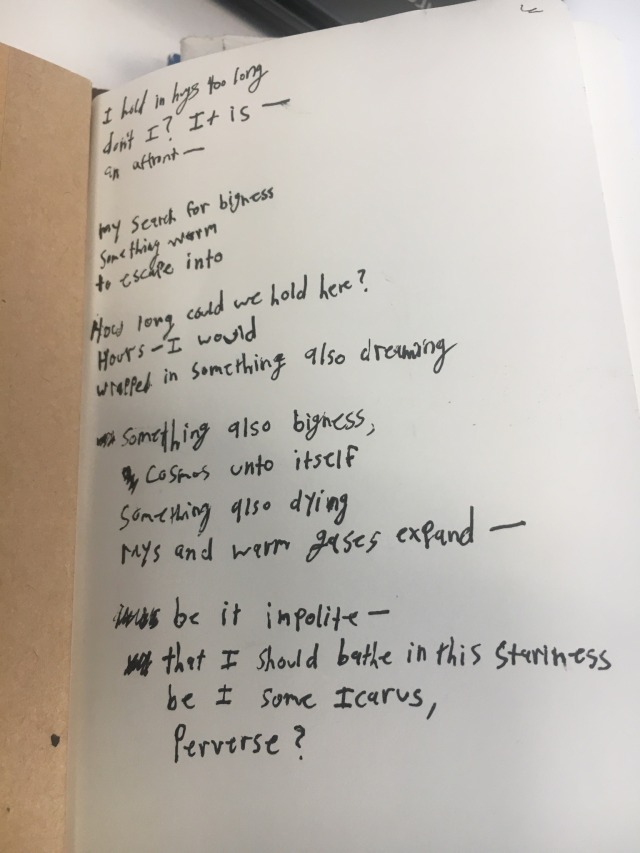 I hold in hugs too long
don't I? It is —
an affront —
my search for bigness
something warm
to escape into
How long could we hold here?
Hours – I would
wrapped in something also dreaming
something also bigness,
cosmos unto itself
something also dying
rays and warm gases expand —
be it inpolite —
that I should bathe in this stariness
be I some Icarus,
Perverse?